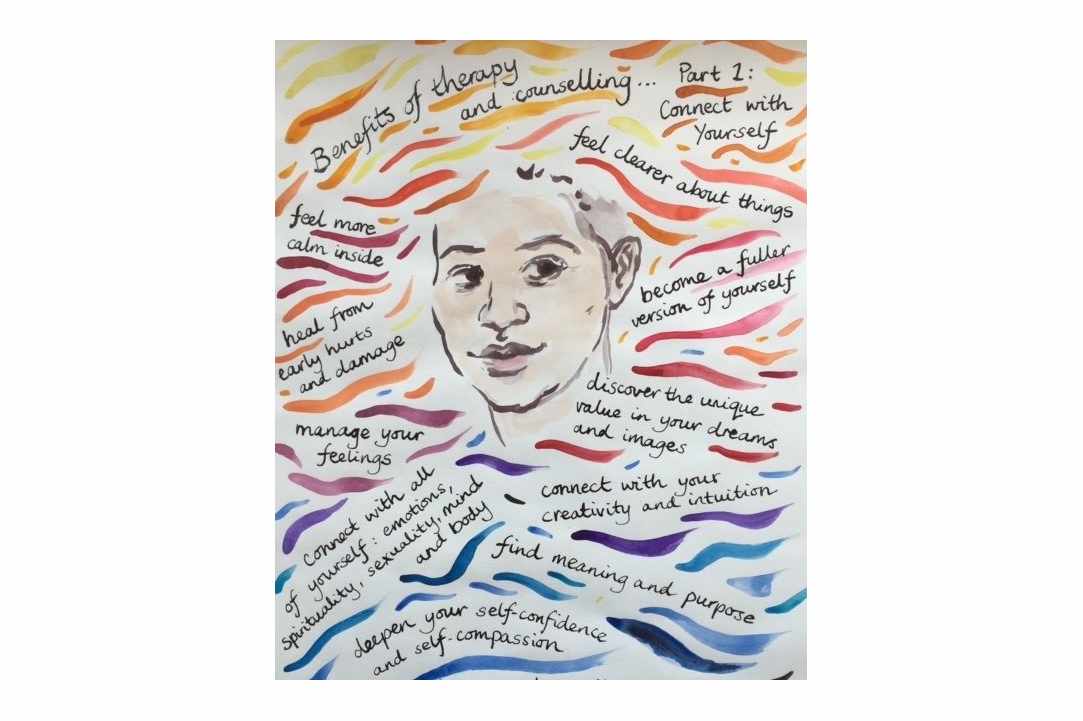 Benefits of therapy
and counselling...
Part 1:
Connect with
Yourself
feel clearer about things
feel more
calm inside
become a fuller
version of yourself
heal from
early hurts
and damage
discover the unique
value in your dreams
and images
manage your
feelings
connect with all
of yourself: emotions,
spirituality, sexuality, mind
and body
connect with your
creativity and intuition
find meaning and purpose
deepen your self-confidence
and self-compassion